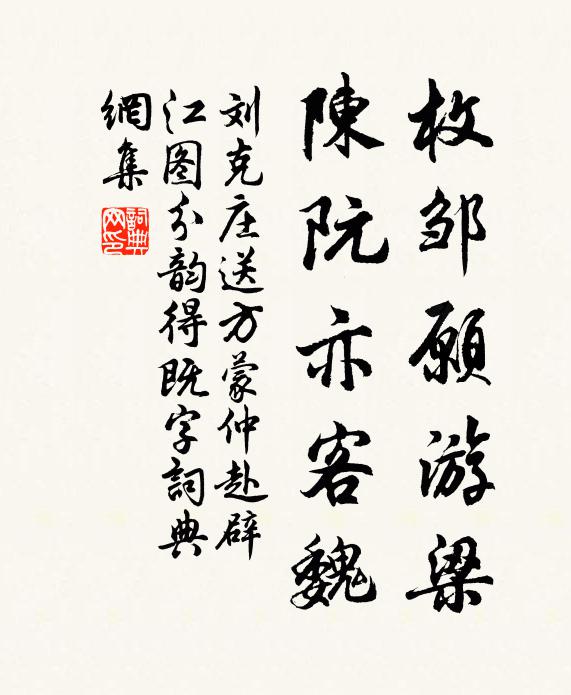 枚邹願游梁
陳阮亦客魏
刘克庄送方蒙仲赴辟
江图分韵得既字詞典
網集
詞典网印